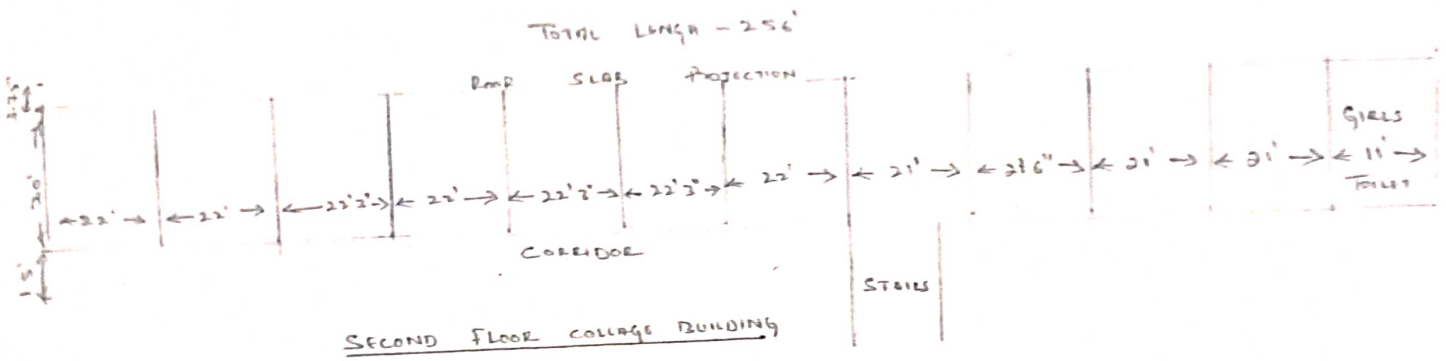 TOTAL LENGH - 256'
ROOF SLAB PROJECTION
GIRLS
22' 22' 22'3" 22' 22'3" 22'3" 22' 21' 21'6" 21' 21' 11'
TOILET
CORRIDOR
STAIRS
SECOND FLOOR COLLAGE BUILDING